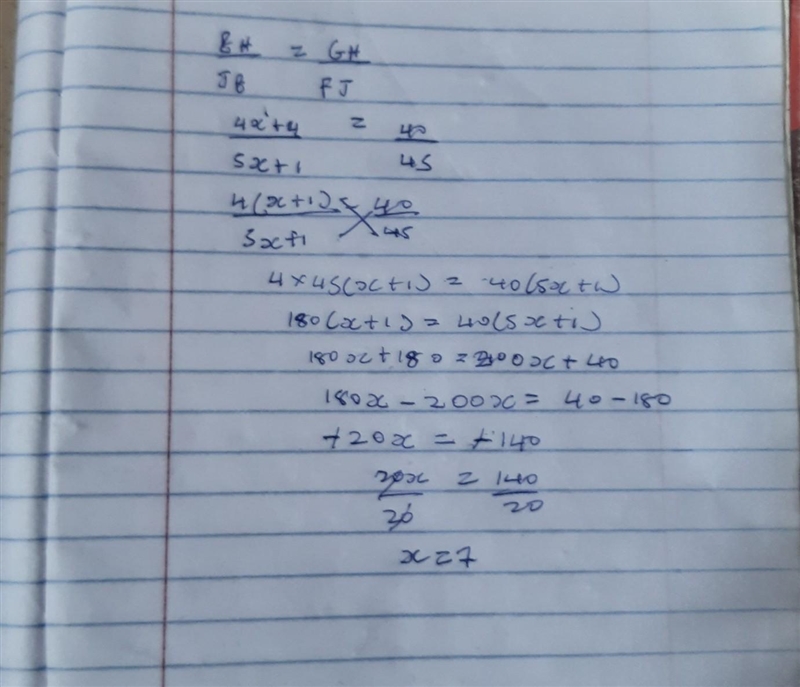 BH = GH
JB FJ
4x+4 = 40
5x+1 45
4(x+1) = 40
5x+1 45
4×45(x+1) = 40(5x+1)
180(x+1) = 40(5x+1)
180x+180 = 200x+40
180x - 200x = 40 - 180
-20x = -140
20x = 140
20 20
x = 7